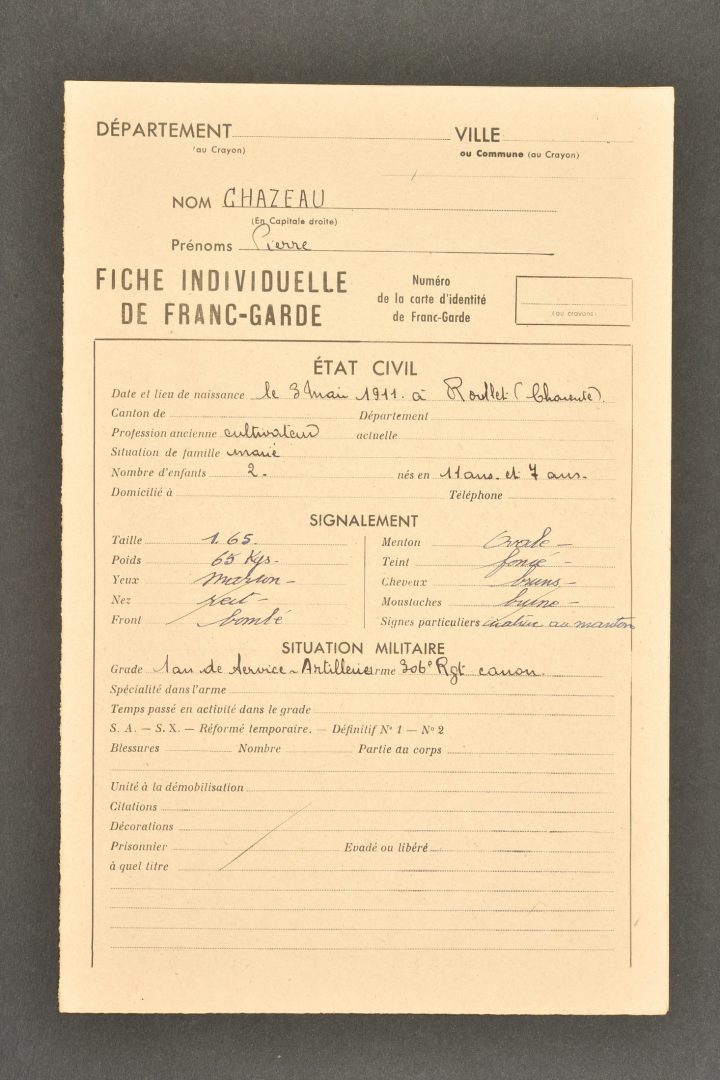 DÉPARTEMENT VILLE
(au Crayon) ou Commune (au Crayon)
NOM CHAZEAU
(En Capitale droite)
Prénoms Pierre
FICHE INDIVIDUELLE
DE FRANC-GARDE
Numéro
de la carte d'identité
de Franc-Garde
(au crayon)
ÉTAT CIVIL
Date et lieu de naissance le 3 Mai 1911. à Roullet (Charente).
Canton de Département
Profession ancienne cultivateur actuelle
Situation de famille marié
Nombre d'enfants 2. nés en 11 ans. et 7 ans.
Domicilié à Téléphone
SIGNALEMENT
Taille 1.65.
Poids 65 Kgs.
Yeux marron
Nez
Front bombé
Menton Ovale
Teint foncé
Cheveux bruns
Moustaches brune
Signes particuliers au menton
SITUATION MILITAIRE
Grade 1 an de Service - Artillerie Arme 306e Rgt canon.
Spécialité dans l'arme
Temps passé en activité dans le grade
S. A. — S. X. — Réformé temporaire. — Définitif No 1 — No 2
Blessures Nombre Partie du corps
Unité à la démobilisation
Citations
Décorations
Prisonnier Evadé ou libéré
à quel titre